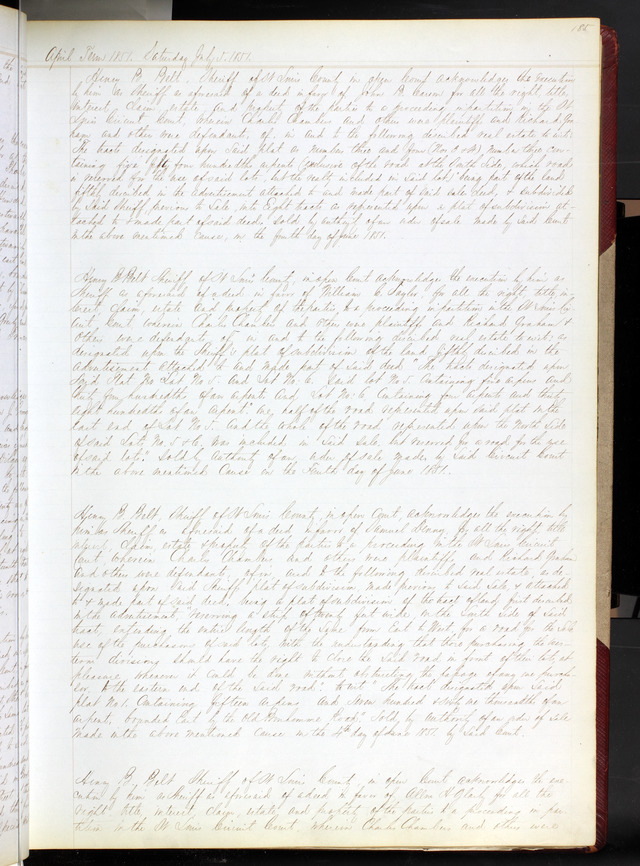 185
April Term 1851. Saturday July 5. 1851.
Henry B Belt, Sheriff of St Louis County, in open Court acknowledges the execution
by him as Sheriff as aforesaid of a deed in favor of John B. for all the right, title,
interest, claim, estate, and property of the parties to a proceeding in partition in the St
Louis Circuit Court, wherein Charles Chambers and others were plaintiffs and Richard Gra-
ham and others were defendants, of, in and to the following described real estate to wit:
The tracts designated upon said plat as number three and four (Nos 3 & 4) number three con-
taining five fifty four hundredths arpents of the road at the South side, which road
is reserved for the use of said lots, but the not included in said lot, being part of the land
fifthly described in the advertisement attached to and made part of said deed, & subdivided
by said Sheriff, previous to sale, into Eight tracts as represented upon a plat of subdivision at-
tached to & made part of said deed. Sold by authority of an order of sale made by said Court
in the above mentioned cause, on the fourth day of June 1851.
Henry B Belt Sheriff of St Louis County, in open Court acknowledges the execution by him as
Sheriff as aforesaid of a deed in favor of William C. Taylor, for all the right, title, in-
terest, claim, estate and property of the parties to a proceeding in partition in the St Louis Cir-
cuit Court, wherein Charles Chambers and others were plaintiffs and Richard Graham &
others were defendants, of, in and to the following described real estate to wit: as
designated upon the Sheriff's plat of subdivision of the land fifthly described in the
advertisement attached to and made part of said deed. The tracts designated upon
said Plat No Lot No 5. and Lot No 6. Said Lot No 5. Containing five arpens and
four hundredths of an arpent and Lot No. 6. Containing four arpents and thirty
eight hundredths of an arpent. half of the road represented upon said plat in the
east end of Lot No 5. And the whole of the road represented upon the North side
of said Lots No 5 & 6, was included in said sale but reserved for a road for the use
of said lots. Sold by authority of an order of sale made by said Circuit Court
in the above mentioned cause on the Fourth day of June 1851.
Henry B. Belt Sheriff of St Louis County, in open Court, acknowledges the execution by
him as Sheriff as aforesaid of a deed in favor of Samuel for all the right title
interest, claim, estate & property of the parties to a proceeding in the St Louis Circuit
Court, wherein Charles Chambers and others were plaintiffs and Richard Graham
and others were defendants, of, in and to the following described real estate, as de-
signated upon said Sheriff's plat of subdivision made previous to said sale, & attached
to & made part of said deed, being a plat of subdivision of the tract of land first described
in the advertisement, reserving a strip of twenty feet wide in the South side of said
tract, extending the entire length of the same from East to West, for a road for the sole
use of the purchasers of said lots with the understanding that those purchasing the wes-
tern divisions should have the right to close the said road in front of their lots, at
pleasure, wherever it could be done without obstructing the passage of any one purcha-
ser, to the eastern end of the said road, to wit "The tract designated upon said
plat No 1. Containing fifteen arpens and Seven hundred & sixty one thousandths of an
arpent, bounded East by the Old Road". Sold by authority of an order of sale
made in the above mentioned cause on the 4th day of June 1851. by said Court.
Henry B. Belt Sheriff of St Louis County, in open Court acknowledges the exe-
cution by him as Sheriff as aforesaid of a deed in favor of Allen S. Clark for all the
right title, interest, claim, estate, and property of the parties to a proceeding in par-
tition in the St Louis Circuit Court, wherein Charles Chambers and others were